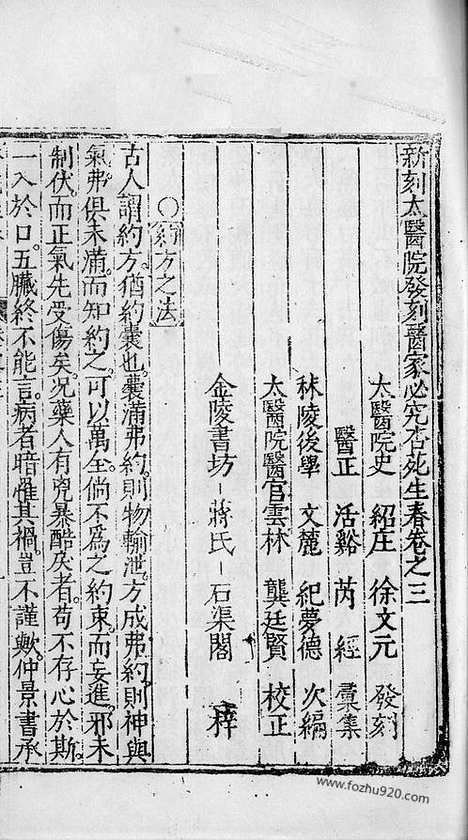 新刻太醫院發刻醫家必究杏苑生春卷之三
太醫院史 紹庄 徐文元 發刻
醫正 活谿 芮經 彙集
秣陵後學 文麓 紀夢德 次編
太醫院醫官雲林 龔廷賢 校正
金陵書坊 蔣氏 石渠閣 梓
○約方之法
古人謂約方猶約囊也。囊滿弗約則物輸泄。方成弗約則神與
氣弗俱未滿。而知約之可以萬全。倘不為之約束。而妄進。邪未
制伏。而正氣先受傷矣。况藥人有兇暴酷灰者。苟不存心於斯。
一入於口。五臟終不能言。病者暗罹其禍。豈不謹歟。仲景書承
www.fozhu920.com